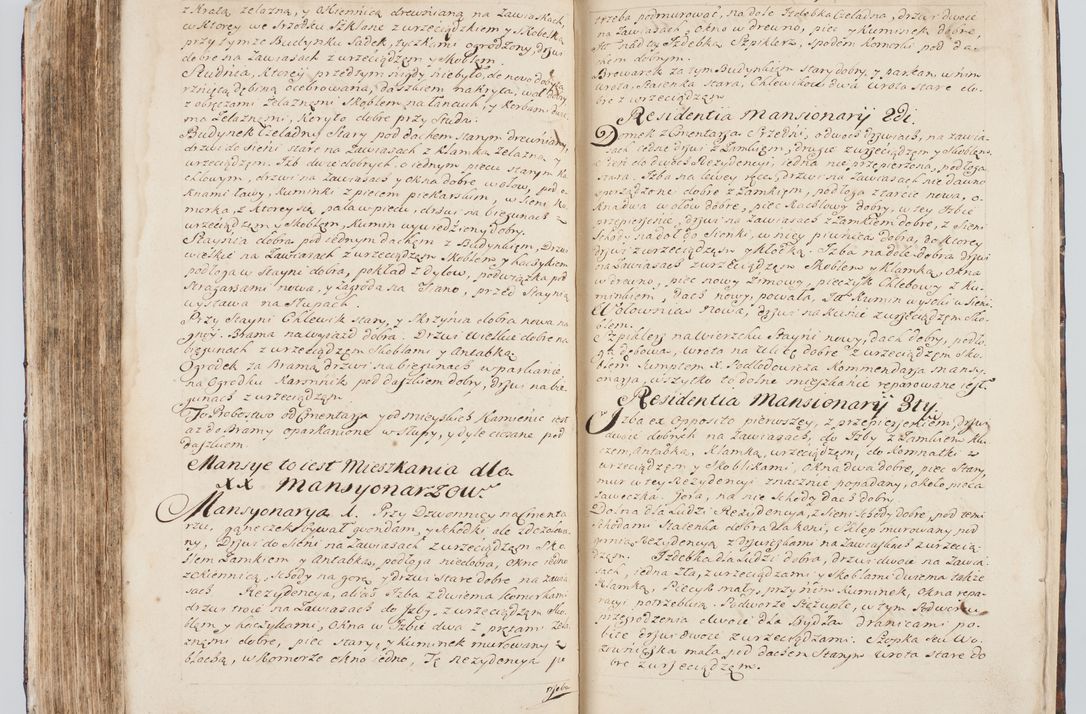 z Kratą żelazną, y Okiennicą drewnianą na Zawiasach,
w Ktorey we Srzodku Szklane z wrzeciądzkiem y Skobelką
przy tymże Budynku Sadek, tyczkami ogrodzony, drzwi
dobre na Zawiasach z wrzeciądzem y Skoblem.
Studnica, Ktorey przedtym nigdy niebyło, de novo dobrze
rznięta, dębiną ocebrowana, daszkiem nakryta, wał dobry
z obręczami żelaznemi Skoblem na łancuch, y Korbami dwie
ma żelaznemi, Koryto dobre przy Studni.
Budynek Czeladny Stary pod dachem Starym drewnianym,
drzwi do Sieni stare na Zawiasach z Klamką żelazną, y
wrzeciądzem. Izb dwie dobrych, o jednym piecu starym Ka
chlowym, drzwi na Zawiasach y Okna dobre w ołow, pod o
knami ławy, Kuminki z piecem piekarskim, w Sieni, Ko
morka, z Ktorey się pala w piecu, drzwi na biegunach z
wrzeciądzem y Skoblem, Kumin wywiedziony dobry.
Staynia dobra pod jednym dachem z Budynkiem, Drzwi
wielkie na Zawiasach z wrzeciądzem Skoblem y haczykiem
podłoga w Stayni dobra, pokład z dylow, podwiązka pod
Stragarzami nowa, y zagroda na Siano, przed Staynią
wystawa na Słupach.
Przy Stayni Chlewik stary, y Skrzynia dobra nowa na
gnoy. Brama na wyiazd dobra. Drzwi wielkie dobre na
biegunach z wrzeciądzem Skoblami y Antabką.
Ogrodek za Bramą drzwi na biegunach w parkanie,
na Ogrodku Karmnik pod daszkiem dobry, drzwi na bie
gunach z wrzeciądzem.
To Probostwo od Cmentarza y od mieyskich Kamienic iest
aż do Bramy oparkanione w Słupy, y dyle ciesane pod
daszkiem.
Mansye to iest Mieszkania dla
XX Mansyonarzow.
Mansyonarya 1. Przy Dzwonnicy na Cmenta
rzu, ganeczek bywał gwondam, y schodki, ale zdezelowa
ny, Drzwi do Sieni na Zawiasach z wrzeciądzem Sko
blem Zamkiem y Antabką, podłoga niedobra, Okno jedno
z okiennicą, schody na gorę y drzwi stare dobre na zawia
sach Rezydencya, alias Izba z dwiema Komorkami
drzwi troie na Zawiasach do Izby, z wrzeciądzem Sko
blem y haczykami, Okna w Izbie dwa z prętami żela
znemi dobre, piec stary, y Kuminek murowany z
blachą, w Komorze okno iedno, Tę Rezydencyą po
trzeba
trzeba podmurować, na dole Izdebka Czeladna, drzwi dwoie
na Zawiasach, Okno w drewno, piec y Kuminek dobre,
Itt. nad tą Izdebką Szpiklerz, spodem Komorki pod da
chem dobrym.
Browarek za tym Budynkiem stary dobry, y parkan, w nim
wrota, Stasenka Stara, Chlewikow dwa wrota stare do
bre z wrzeciądzem.
Residentia Mansionarij 2di.
Domek z Cmentarza o Srzodki, o dwoch drzwiach, na zawia
sach iedne drzwi z Zamkiem, drugie z wrzeciądzem y Skoblem.
z Sień do dwoch Rezydencyi, iedna nie przepierzona, podłoga
stara. Izba na lewey ręce, drzwi na Zawiasach nie dawno
sporządzone dobre z Zamkiem, podłoga z tarcic nowa, o
kna dwa w ołow dobre, piec Kachlowy dobry. w tey Izbie
przepierzenie, drzwi na Zawiasach z Zamkiem dobre, z Sieni
schody na doł do Sionki, w niey piwnica dobra, do ktorey
drzwi z wrzeciądzem y Kłodką. Izba na dole dobra drzwi
na Zawiasach z wrzeciądzem Skoblem y Klamką, Okna
w drewno, piec nowy zimowy, pieczyk Chlebowy z Ku
minkiem, dach nowy, powała, Itt. Kumin wysoki w Sieni.
Wołownia Nowa, drzwi na Kunie z wrzeciądzem Sko
blem.
Szpiklerz na wierzchu Stayni nowy, dach dobry, podło
ga dębowa, wrota na Ulicę dobre z wrzeciądzem Sko
blem Sumptem X. Podłodowicza Kommendarza Mansy
onarza, wszytko to dolne mieszkanie reparowane iest.
Residentia Mansionarij 3tij.
Izba ex opposito pierwszey, z przepierzeniem, Drzwi
dwoie dobrych na Zawiasach, do Izby z Zamkiem Klu
czem, Antabką, Klamką, wrzeciądzem, do Komnatki z
wrzeciądzem y Skoblikami, Okna dwa dobre, piec Stary,
mur w tey Rezydencyi znacznie popadany, około pieca
ławeczka. Gora, na nie schody dach dobry.
Dolna dla Ludzi Rezydencya, z Sieni schody dobre, pod temi
schodami Stasenka dobra dla Koni, Sklep murowany pod
gornią Rezydencyą z dzwirzkami na Zawiaskach z wrzecią
dzem. Izdebka dla Ludzi dobra, drzwi dwoie na Zawia
sach, iedna zła, z wrzeciądzami y Skoblami dwiema także
Klamką, Piecyk mały, przy nim Kuminek, Okna repa
racyi potrzebuią. Podworze Szczupłe, w tym Podworzu
przegrodzenia dwoie dla Bydła dranicami po
bite drzwi dwoie z wrzeciądzami: Szopka seu Wo
zowniczka mała pod dachem Starym wrota stare do
bre z wrzeciądzem.